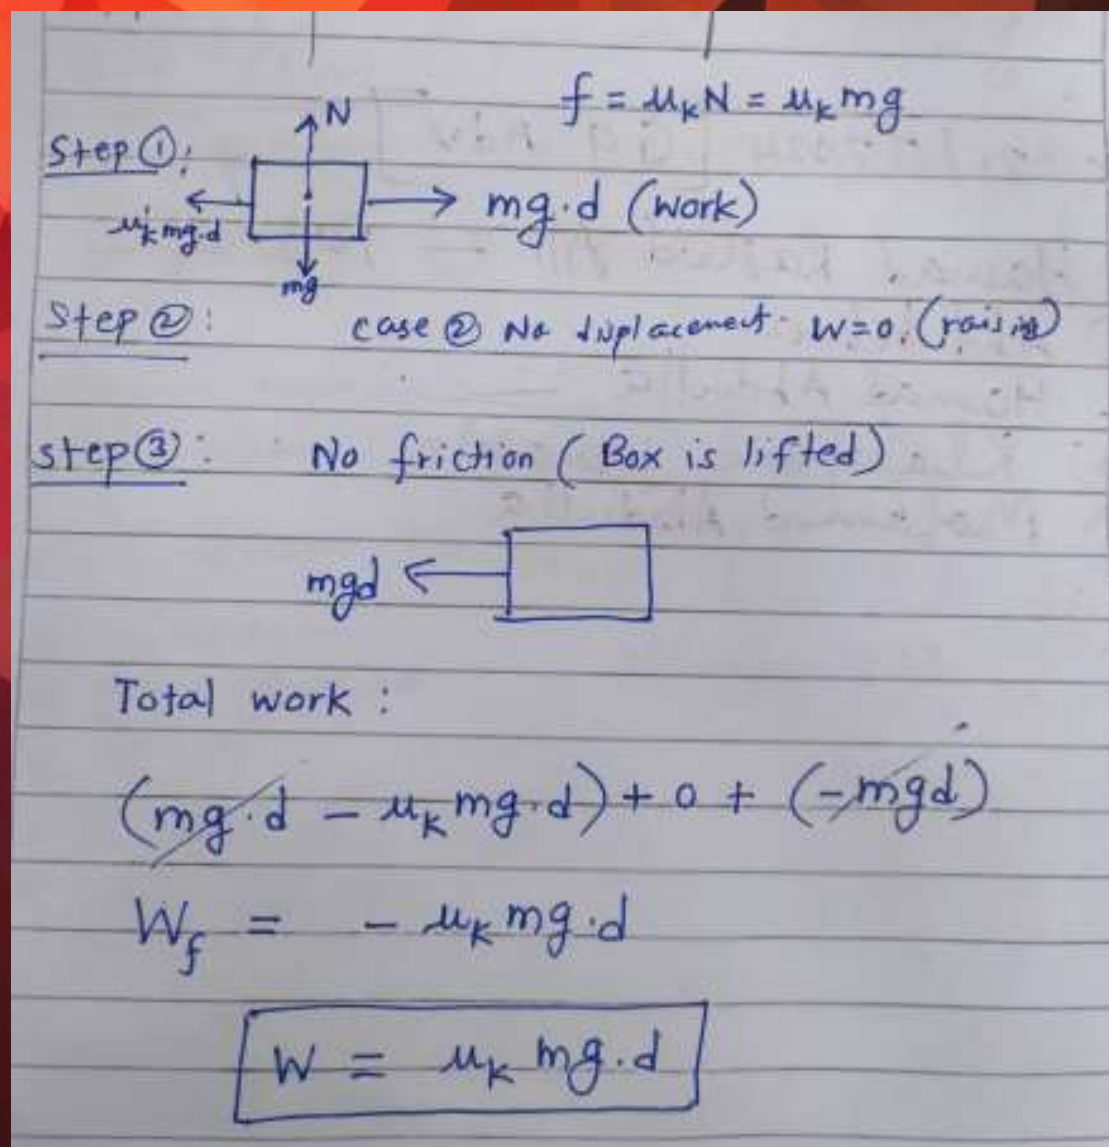 f = μₖN = μₖmg
Step ①:
N
μₖmg.d
mg.d (work)
mg
Step ②: case ② No displacement. W=0. (raising)
step ③: No friction (Box is lifted)
mgd
Total work :
(mg.d - μₖmg.d) + 0 + (-mgd)
W_f = - μₖmg.d
W = μₖmg.d